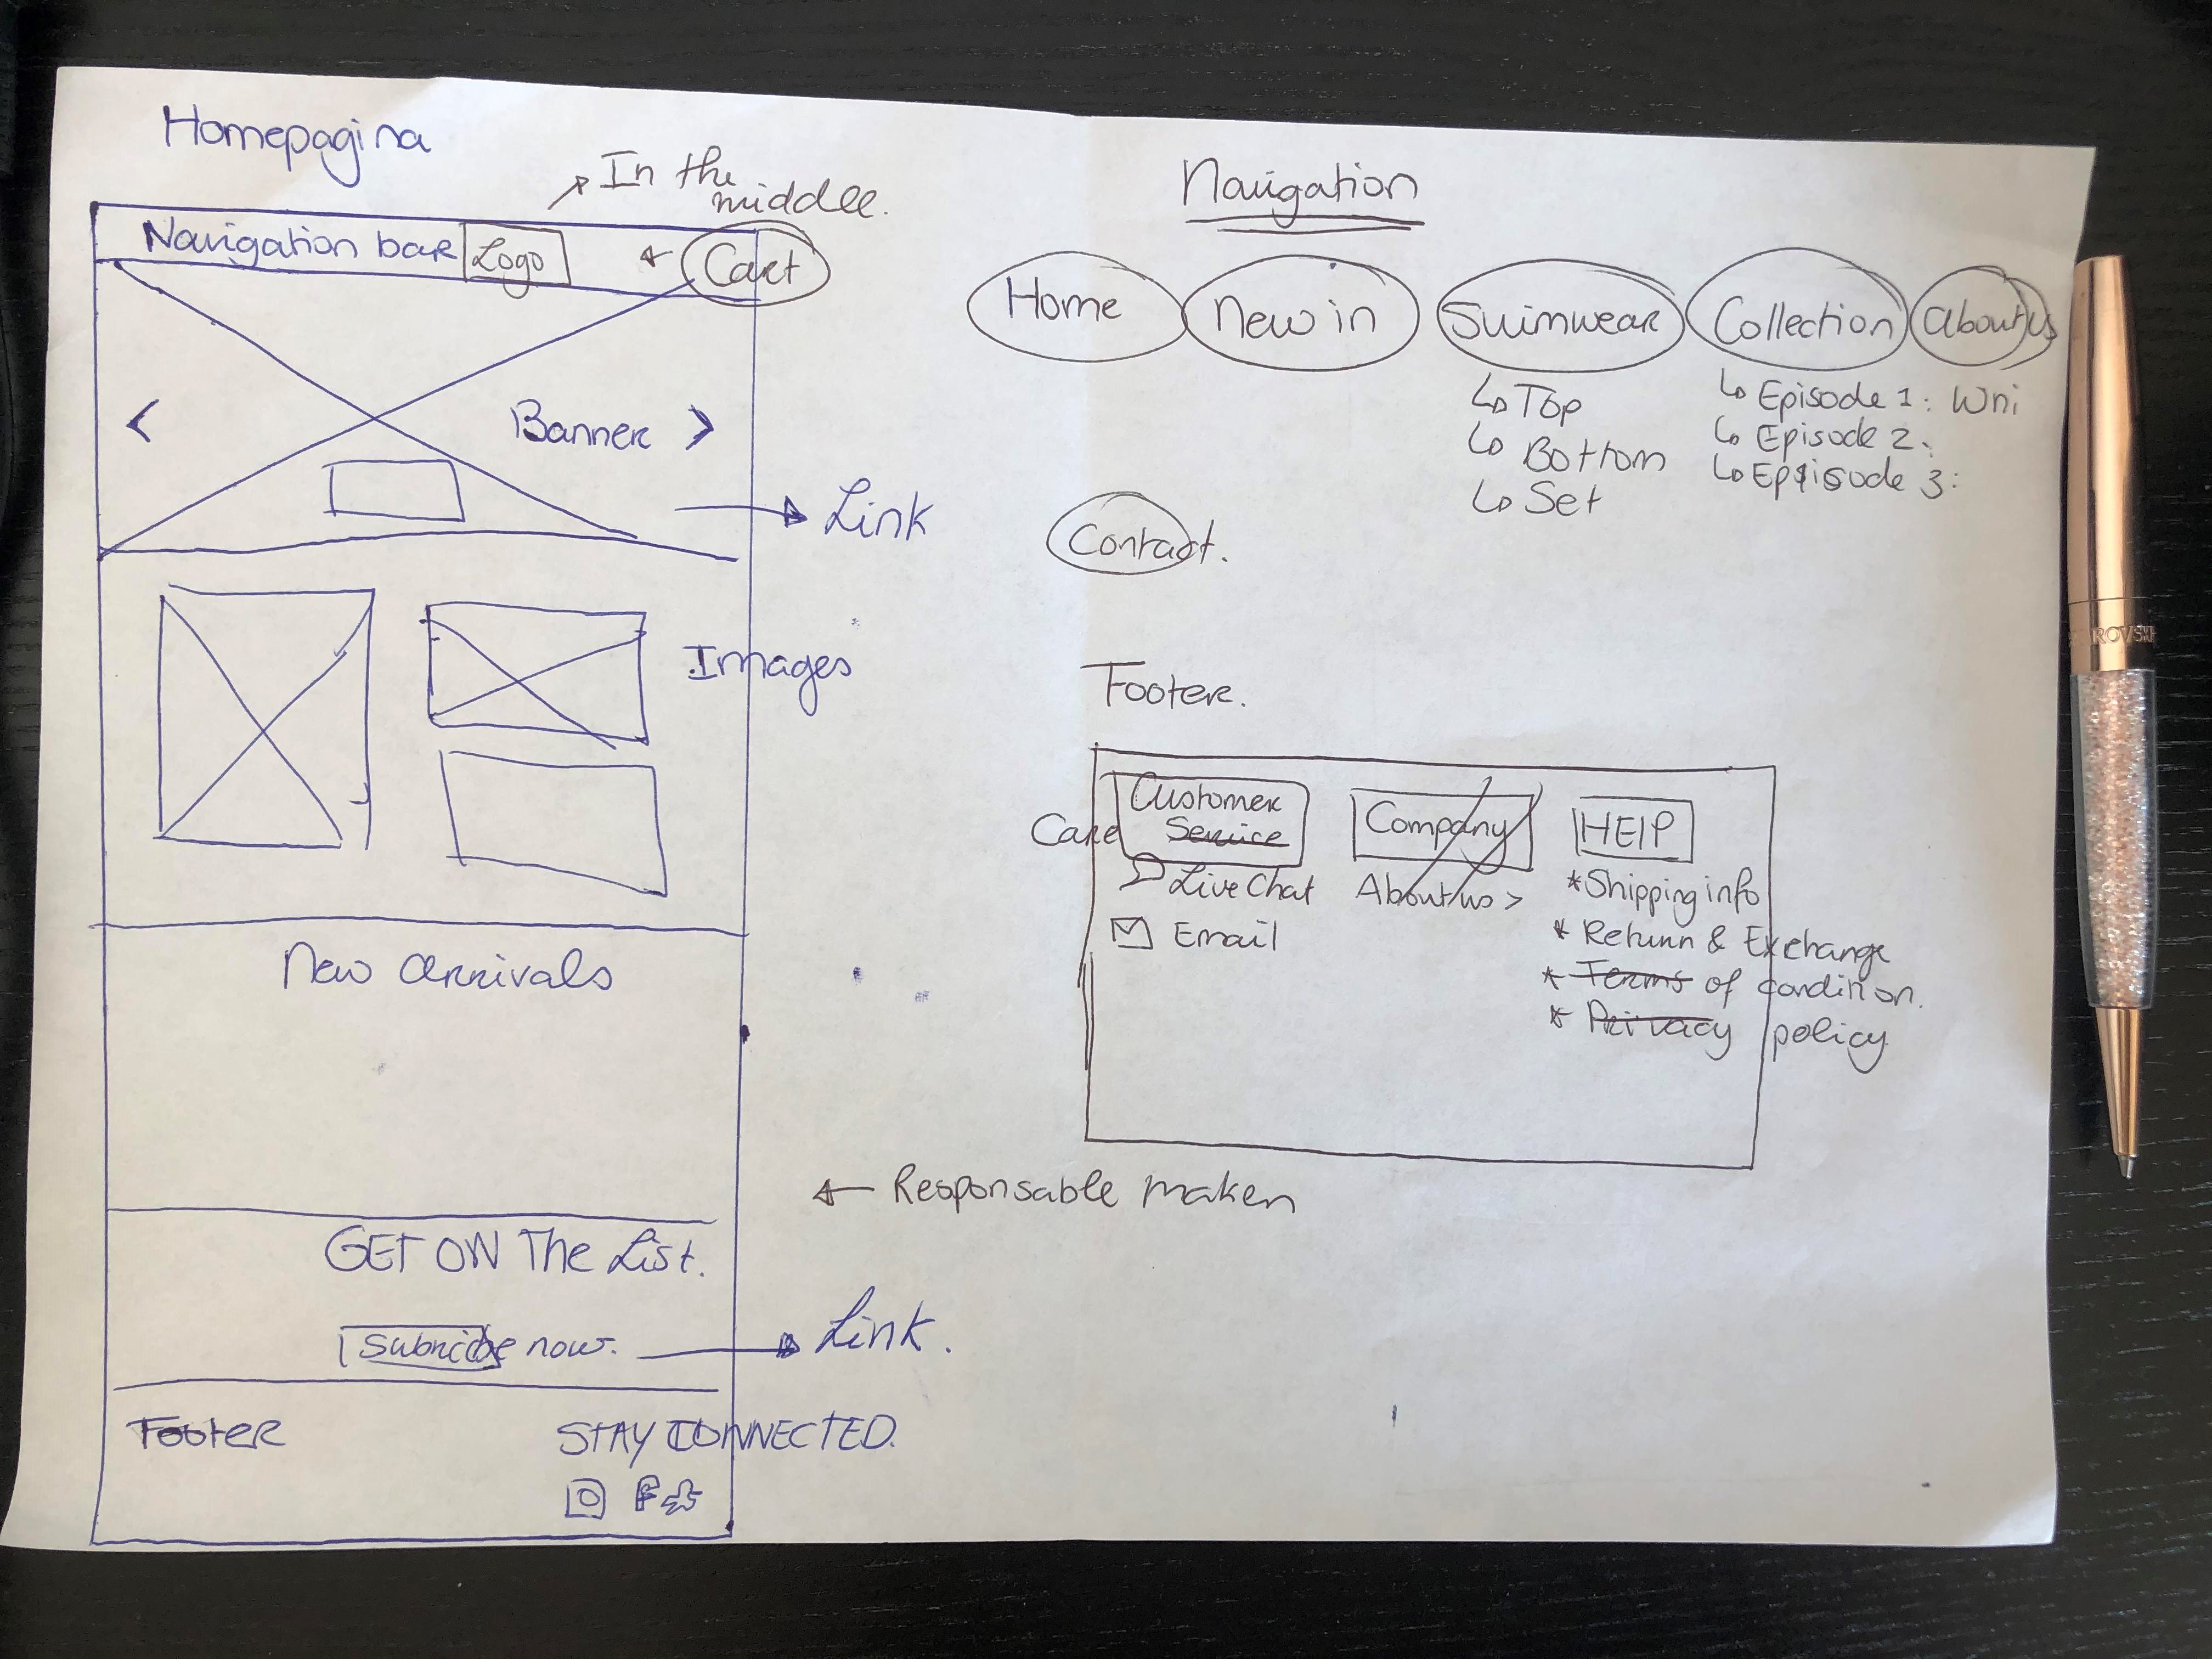 Homepagina
In the
middle.
Navigation bar
Logo
Cart
Banner
Link
Images
New arrivals
GET ON The List.
now.
Link.
Footer
STAY CONNECTED.
Responsable maken
Navigation
Home
New in
Swimwear
Collection
About us
Top
Bottom
Set
Episode 1: Wni
Episode 2.
Episode 3:
Contact.
Footer.
Customer
Care
Service
Live Chat
Email
Company
About us >
HElP
*Shipping info
* Return & Exchange
* Terms of condition.
* Privacy policy
ROVSK